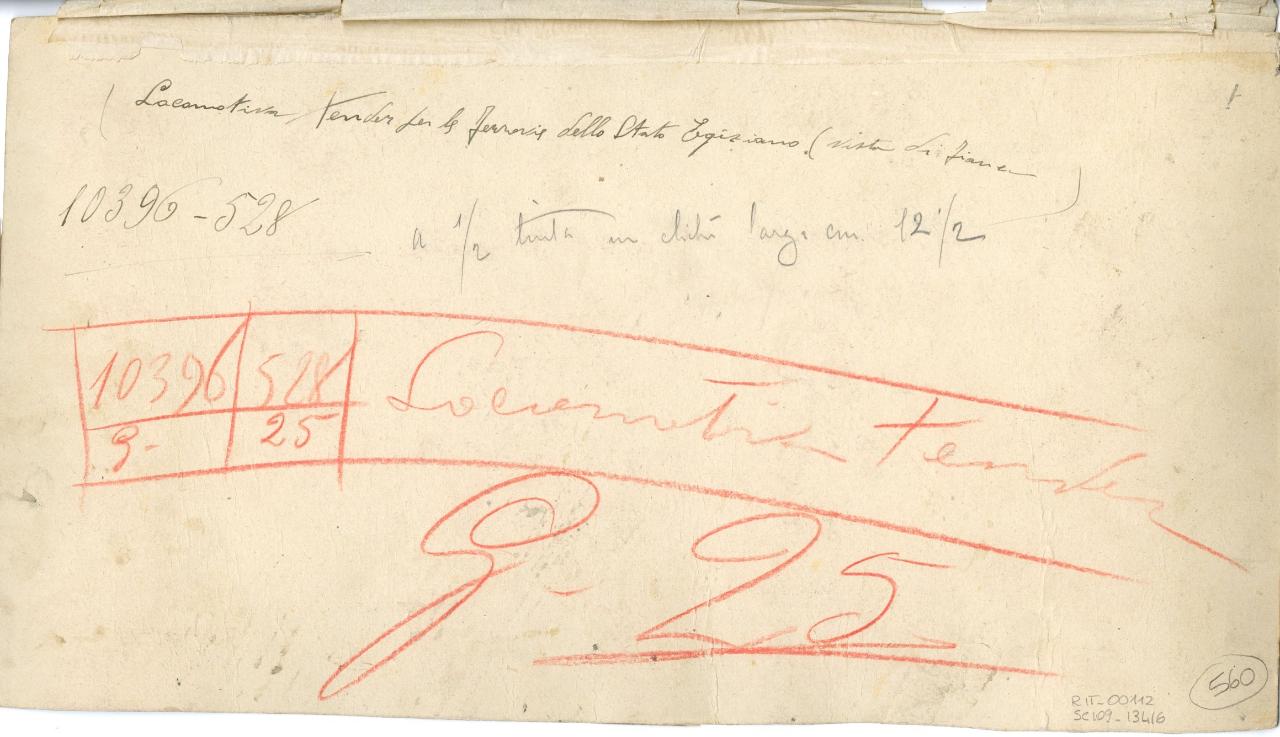 ( Locomotiva Tender per le Ferrovie dello Stato Egiziano (vista di fianco )
10396-528
a 1/2 tinta un cliché largo cm. 12 1/2
10396 528 Locomotiva Tender
9- 25
9- 25
560
RIT-00112
SC109-134/6